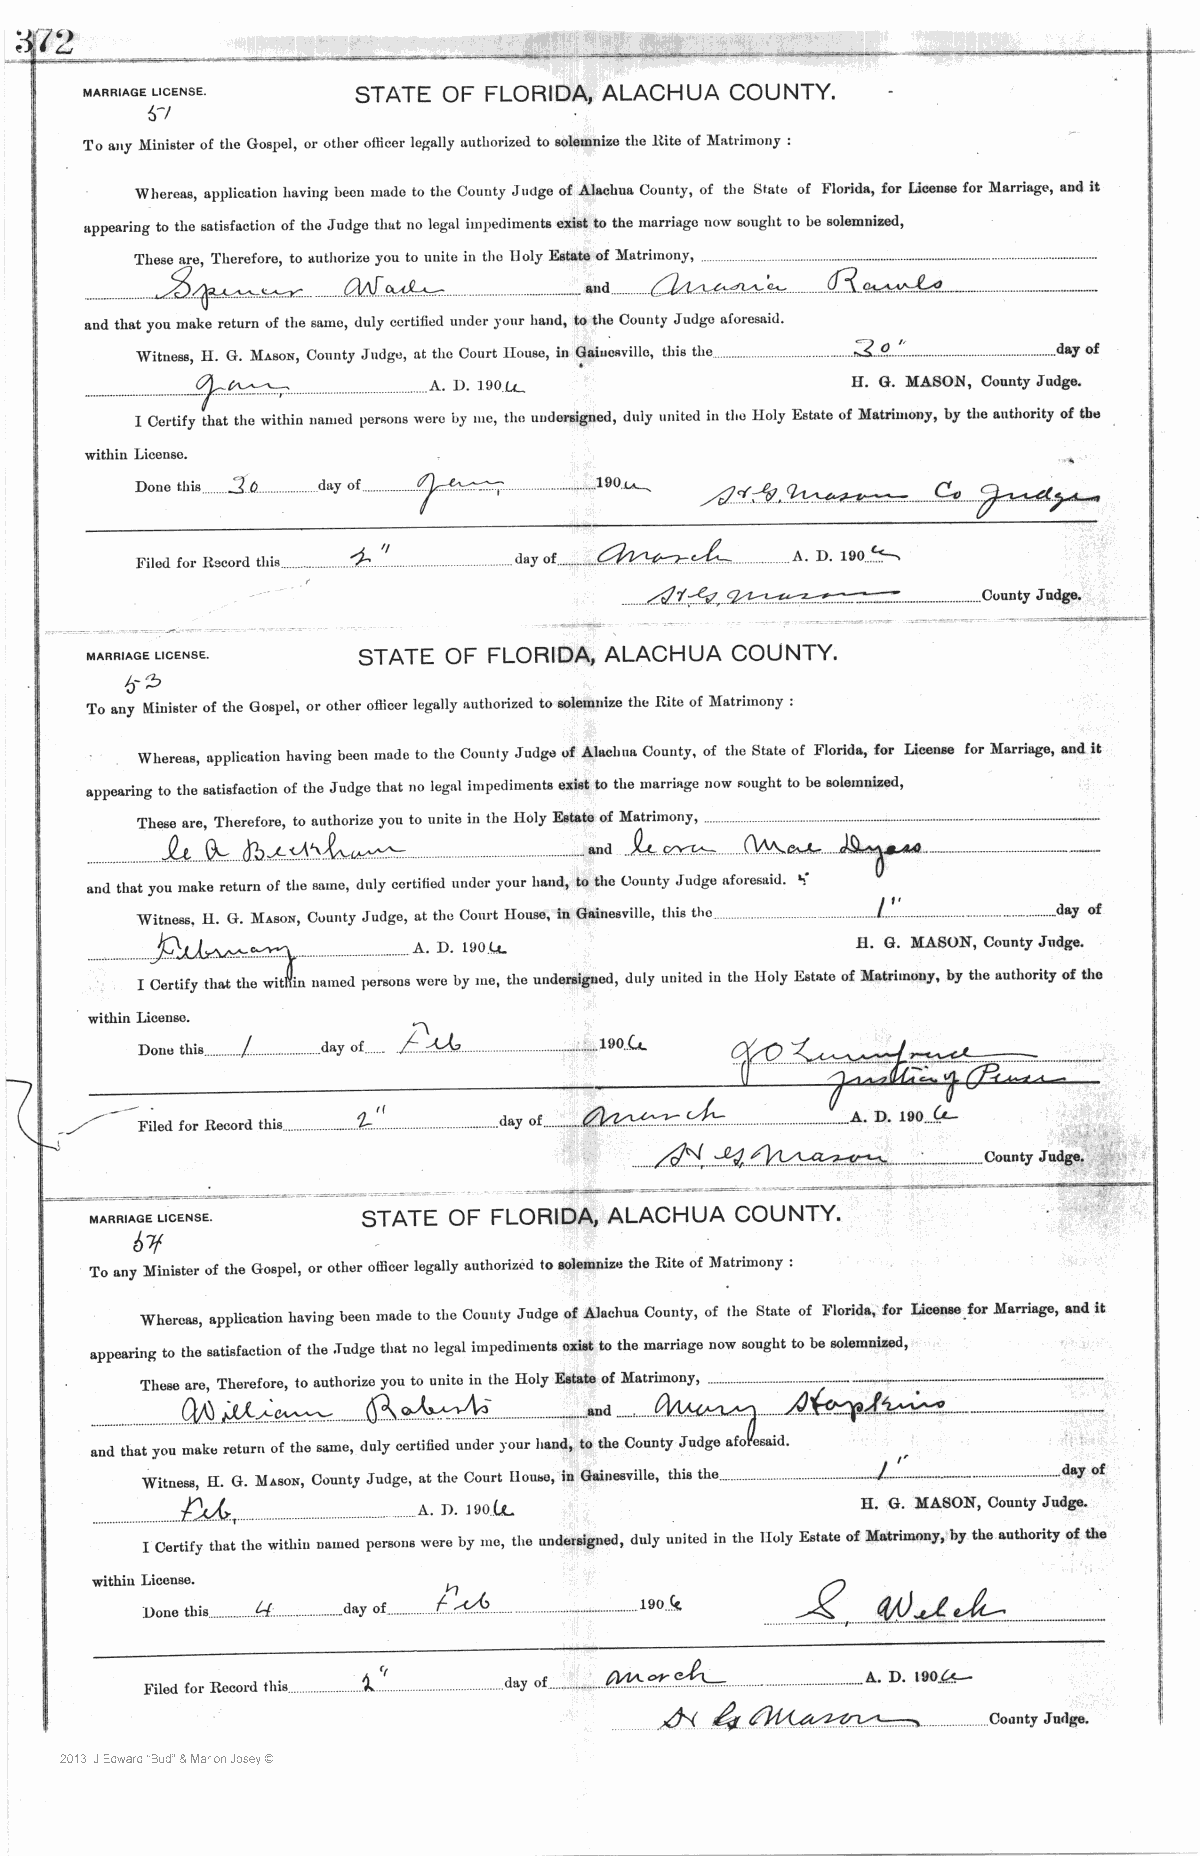 372
MARRIAGE LICENSE. STATE OF FLORIDA, ALACHUA COUNTY.
51
To any Minister of the Gospel, or other officer legally authorized to solemnize the Rite of Matrimony :
Whereas, application having been made to the County Judge of Alachua County, of the State of Florida, for License for Marriage, and it
appearing to the satisfaction of the Judge that no legal impediments exist to the marriage now sought to be solemnized,
These are, Therefore, to authorize you to unite in the Holy Estate of Matrimony,
Spencer Wade and Maria Rawls
and that you make return of the same, duly certified under your hand, to the County Judge aforesaid.
Witness, H. G. MASON, County Judge, at the Court House, in Gainesville, this the 30" day of
Jan, A. D. 1906 H. G. MASON, County Judge.
I Certify that the within named persons were by me, the undersigned, duly united in the Holy Estate of Matrimony, by the authority of the
within License.
Done this 30 day of Jan, 1906 H. G. Mason Co Judge
Filed for Record this 2" day of March A. D. 1906
H. G. Mason County Judge.
MARRIAGE LICENSE. STATE OF FLORIDA, ALACHUA COUNTY.
53
To any Minister of the Gospel, or other officer legally authorized to solemnize the Rite of Matrimony :
Whereas, application having been made to the County Judge of Alachua County, of the State of Florida, for License for Marriage, and it
appearing to the satisfaction of the Judge that no legal impediments exist to the marriage now sought to be solemnized,
These are, Therefore, to authorize you to unite in the Holy Estate of Matrimony,
C A Beckham and Cora Mae Dyess
and that you make return of the same, duly certified under your hand, to the County Judge aforesaid.
Witness, H. G. MASON, County Judge, at the Court House, in Gainesville, this the 1" day of
February A. D. 1906 H. G. MASON, County Judge.
I Certify that the within named persons were by me, the undersigned, duly united in the Holy Estate of Matrimony, by the authority of the
within License.
Done this 1 day of Feb 1906 J O
Justice of Peace
Filed for Record this 2" day of March A. D. 1906
H. G. Mason County Judge.
MARRIAGE LICENSE. STATE OF FLORIDA, ALACHUA COUNTY.
54
To any Minister of the Gospel, or other officer legally authorized to solemnize the Rite of Matrimony :
Whereas, application having been made to the County Judge of Alachua County, of the State of Florida, for License for Marriage, and it
appearing to the satisfaction of the Judge that no legal impediments exist to the marriage now sought to be solemnized,
These are, Therefore, to authorize you to unite in the Holy Estate of Matrimony,
William Roberts and Mary Hopkins
and that you make return of the same, duly certified under your hand, to the County Judge aforesaid.
Witness, H. G. MASON, County Judge, at the Court House, in Gainesville, this the 1" day of
Feb, A. D. 1906 H. G. MASON, County Judge.
I Certify that the within named persons were by me, the undersigned, duly united in the Holy Estate of Matrimony, by the authority of the
within License.
Done this 4 day of Feb 1906 S. Welch
Filed for Record this 2" day of March A. D. 1906
H G Mason County Judge.
2013 J Edward "Bud" & Marion Josey ©